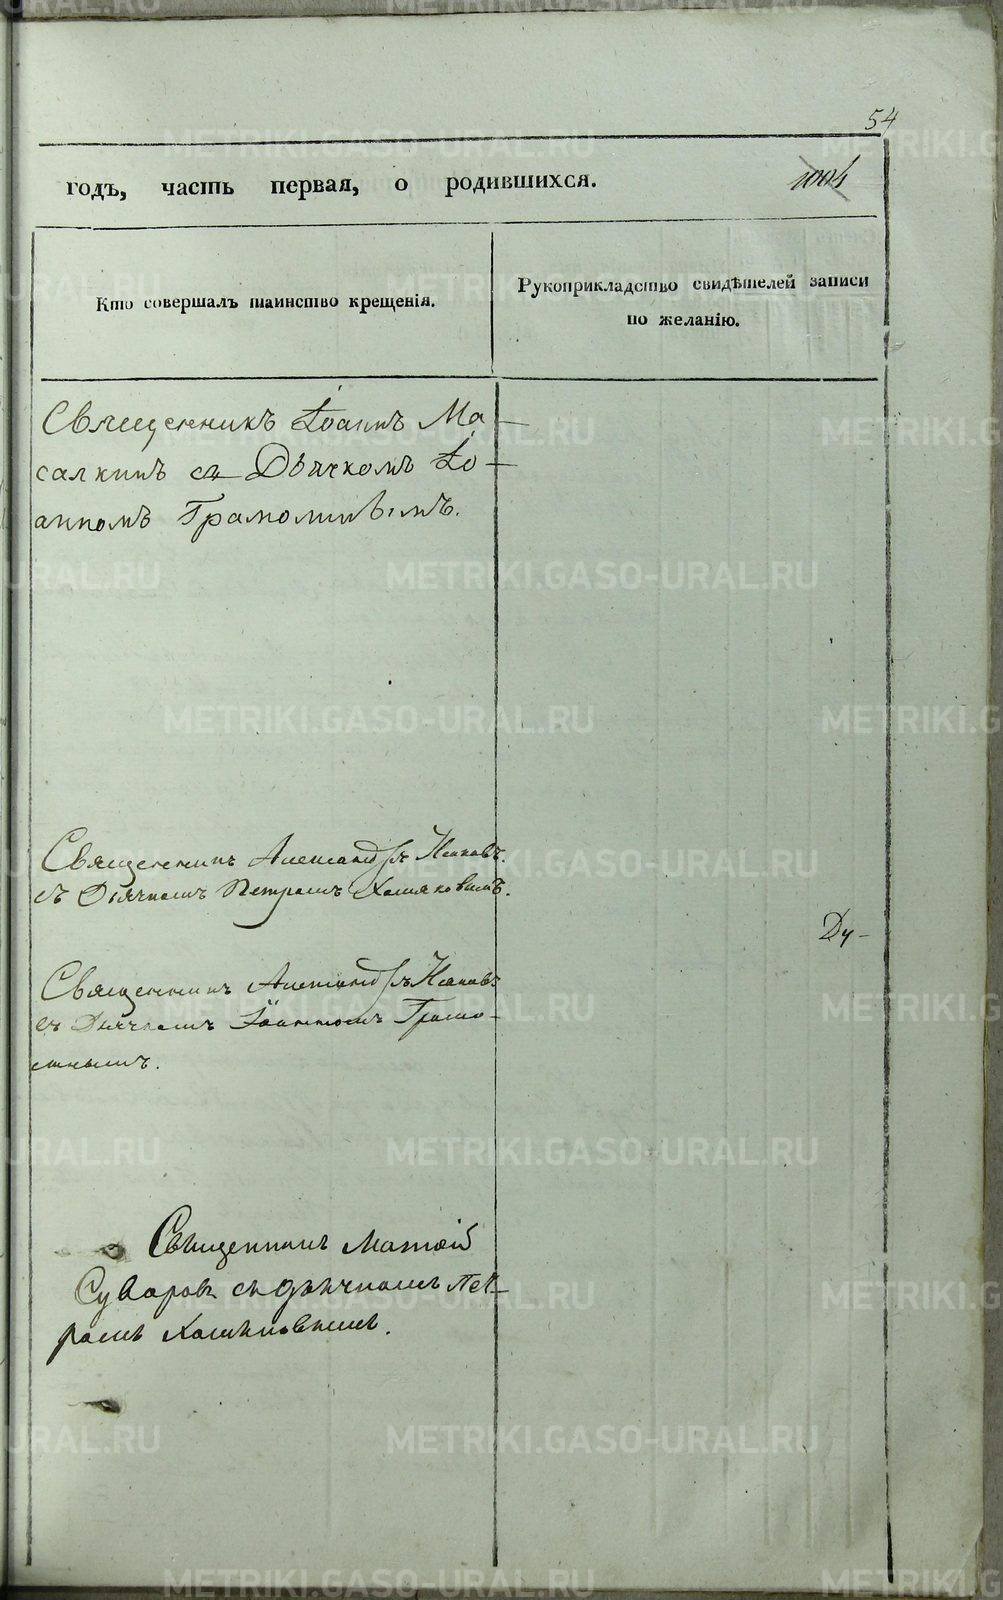 54
годъ, часть первая, о родившихся.
Кто совершалъ таинство крещенія.
Рукоприкладство свидѣтелей записи
по желанію.
Священникъ Іоаннъ Ма-
салкинъ съ Дьячкомъ Іо-
анномъ Грамотнымъ.
Священникъ Александръ Исаковъ.
съ Дьячкомъ Петромъ Хомяковымъ.
Ду-
Священникъ Александръ Исаковъ
съ Дьячкомъ Іоанномъ Грамо-
тнымъ.
Священникъ Матѳій
Суваровъ съ дьячкомъ Пет-
ромъ Хомяковымъ.
METRIKI.GASO-URAL.RU